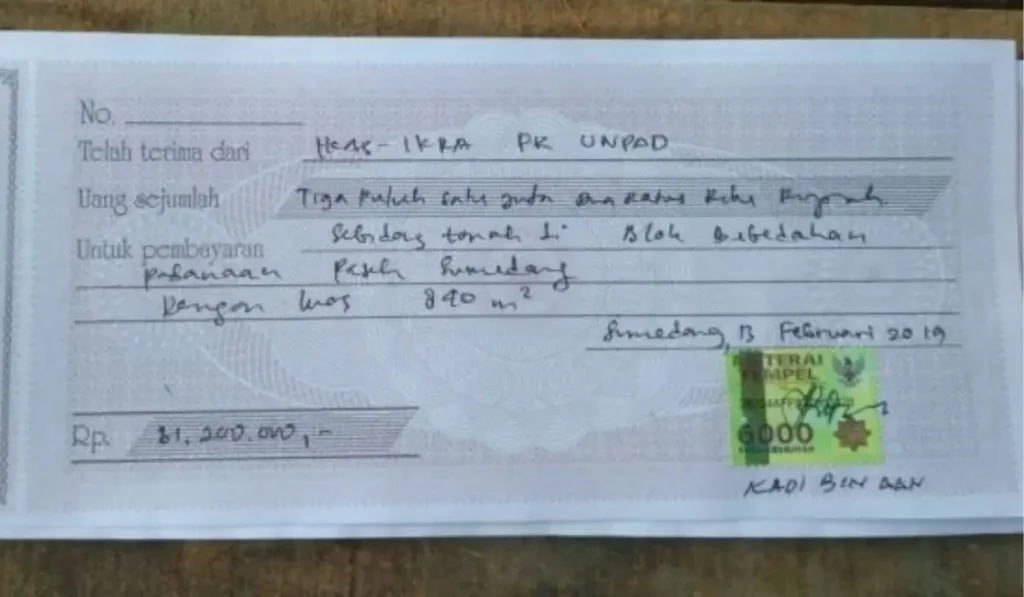 No.
Telah terima dari HKAS-IKRA PK UNPAD
Uang sejumlah Tiga Puluh satu juta dua Ratus Ribu Rupiah.
Untuk pembayaran Sebidang tanah di Blok Bebedahan
Paseh Sumedang
Dengan luas 890 m²
Sumedang, 13 Februari 2019
METERAI
TEMPEL
6000
Rp. 31.200.000,-
KADI BIN AAN